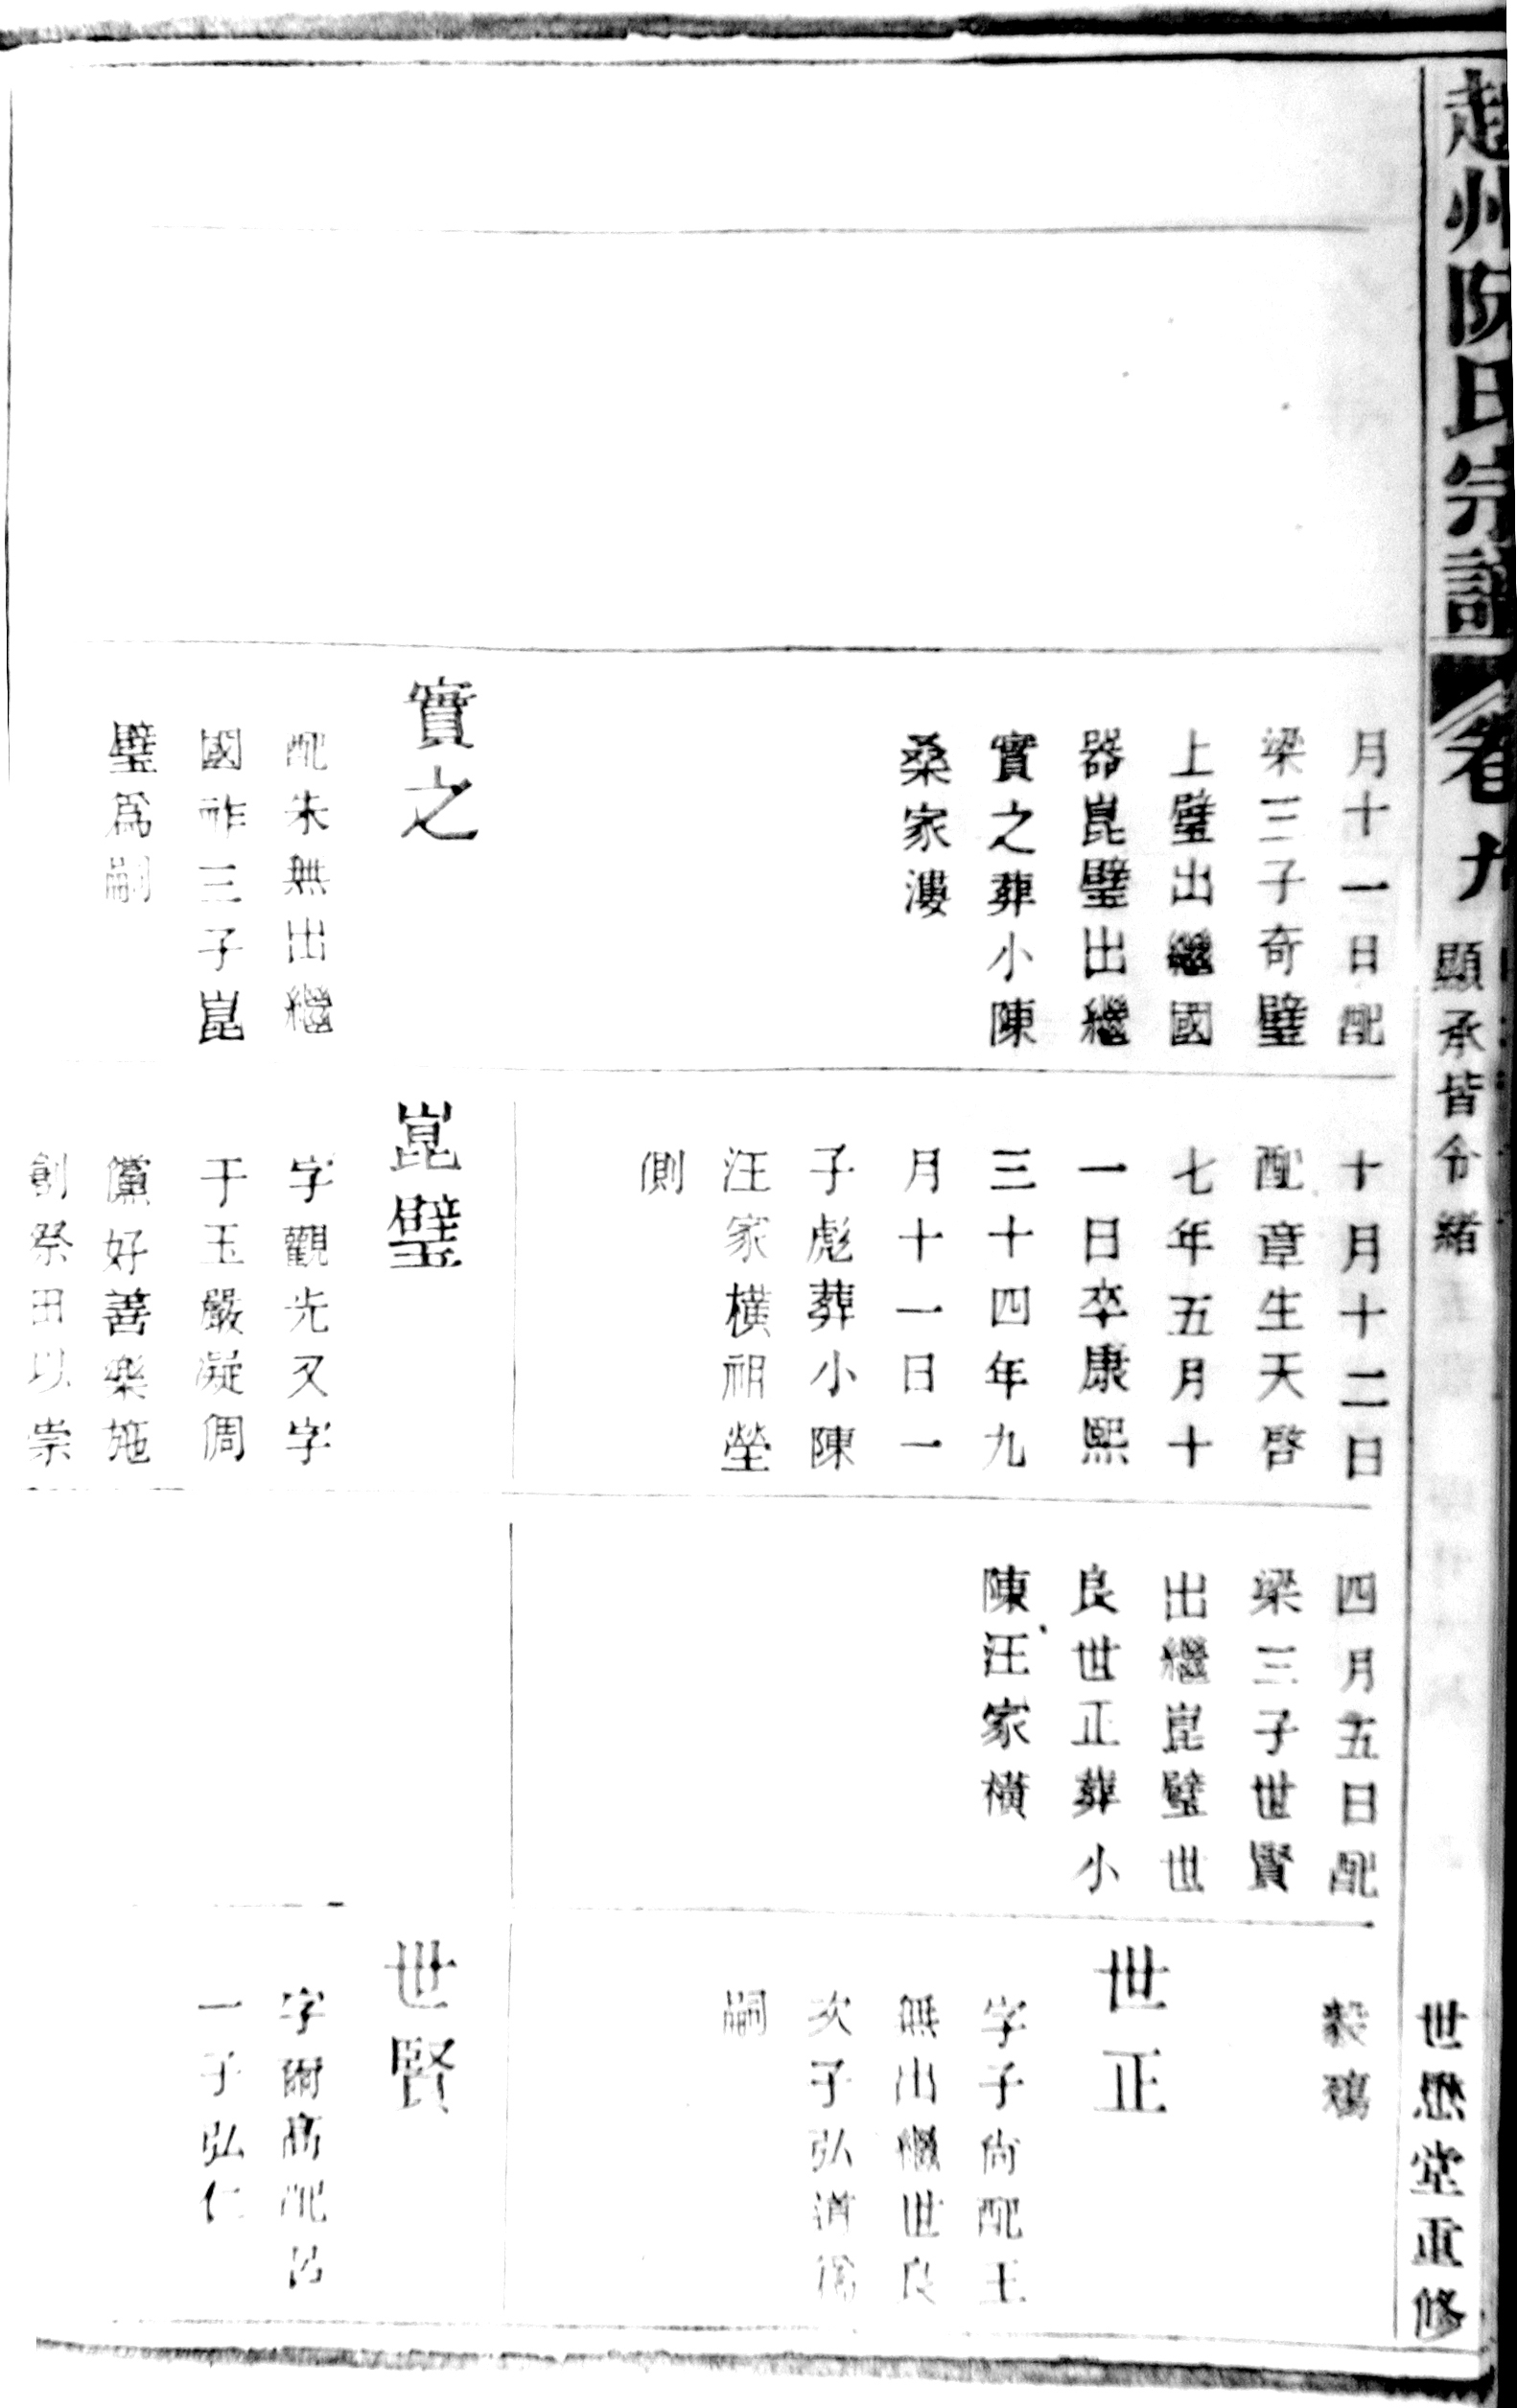 趙州阮氏宗譜
卷九
顯承皆令緒
世懋堂重修
月十一日配
梁三子奇璧
上璧出繼國
器崑璧出繼
實之葬小陳
桑家漊
實之
配朱無出繼
國祚三子崑
璧爲嗣
十月十二日
配章生天啓
七年五月十
一日卒康熙
三十四年九
月十一日一
子彪葬小陳
汪家橫祖塋
側
崑璧
字觀光又字
于玉嚴凝倜
儻好善樂施
創祭田以崇
四月五日配
梁三子世賢
出繼崑璧世
良世正葬小
陳汪家橫
毅鴻
世正
字子尚配王
無出繼世良
次子弘道爲
嗣
世賢
字爾高配呂
一子弘仁